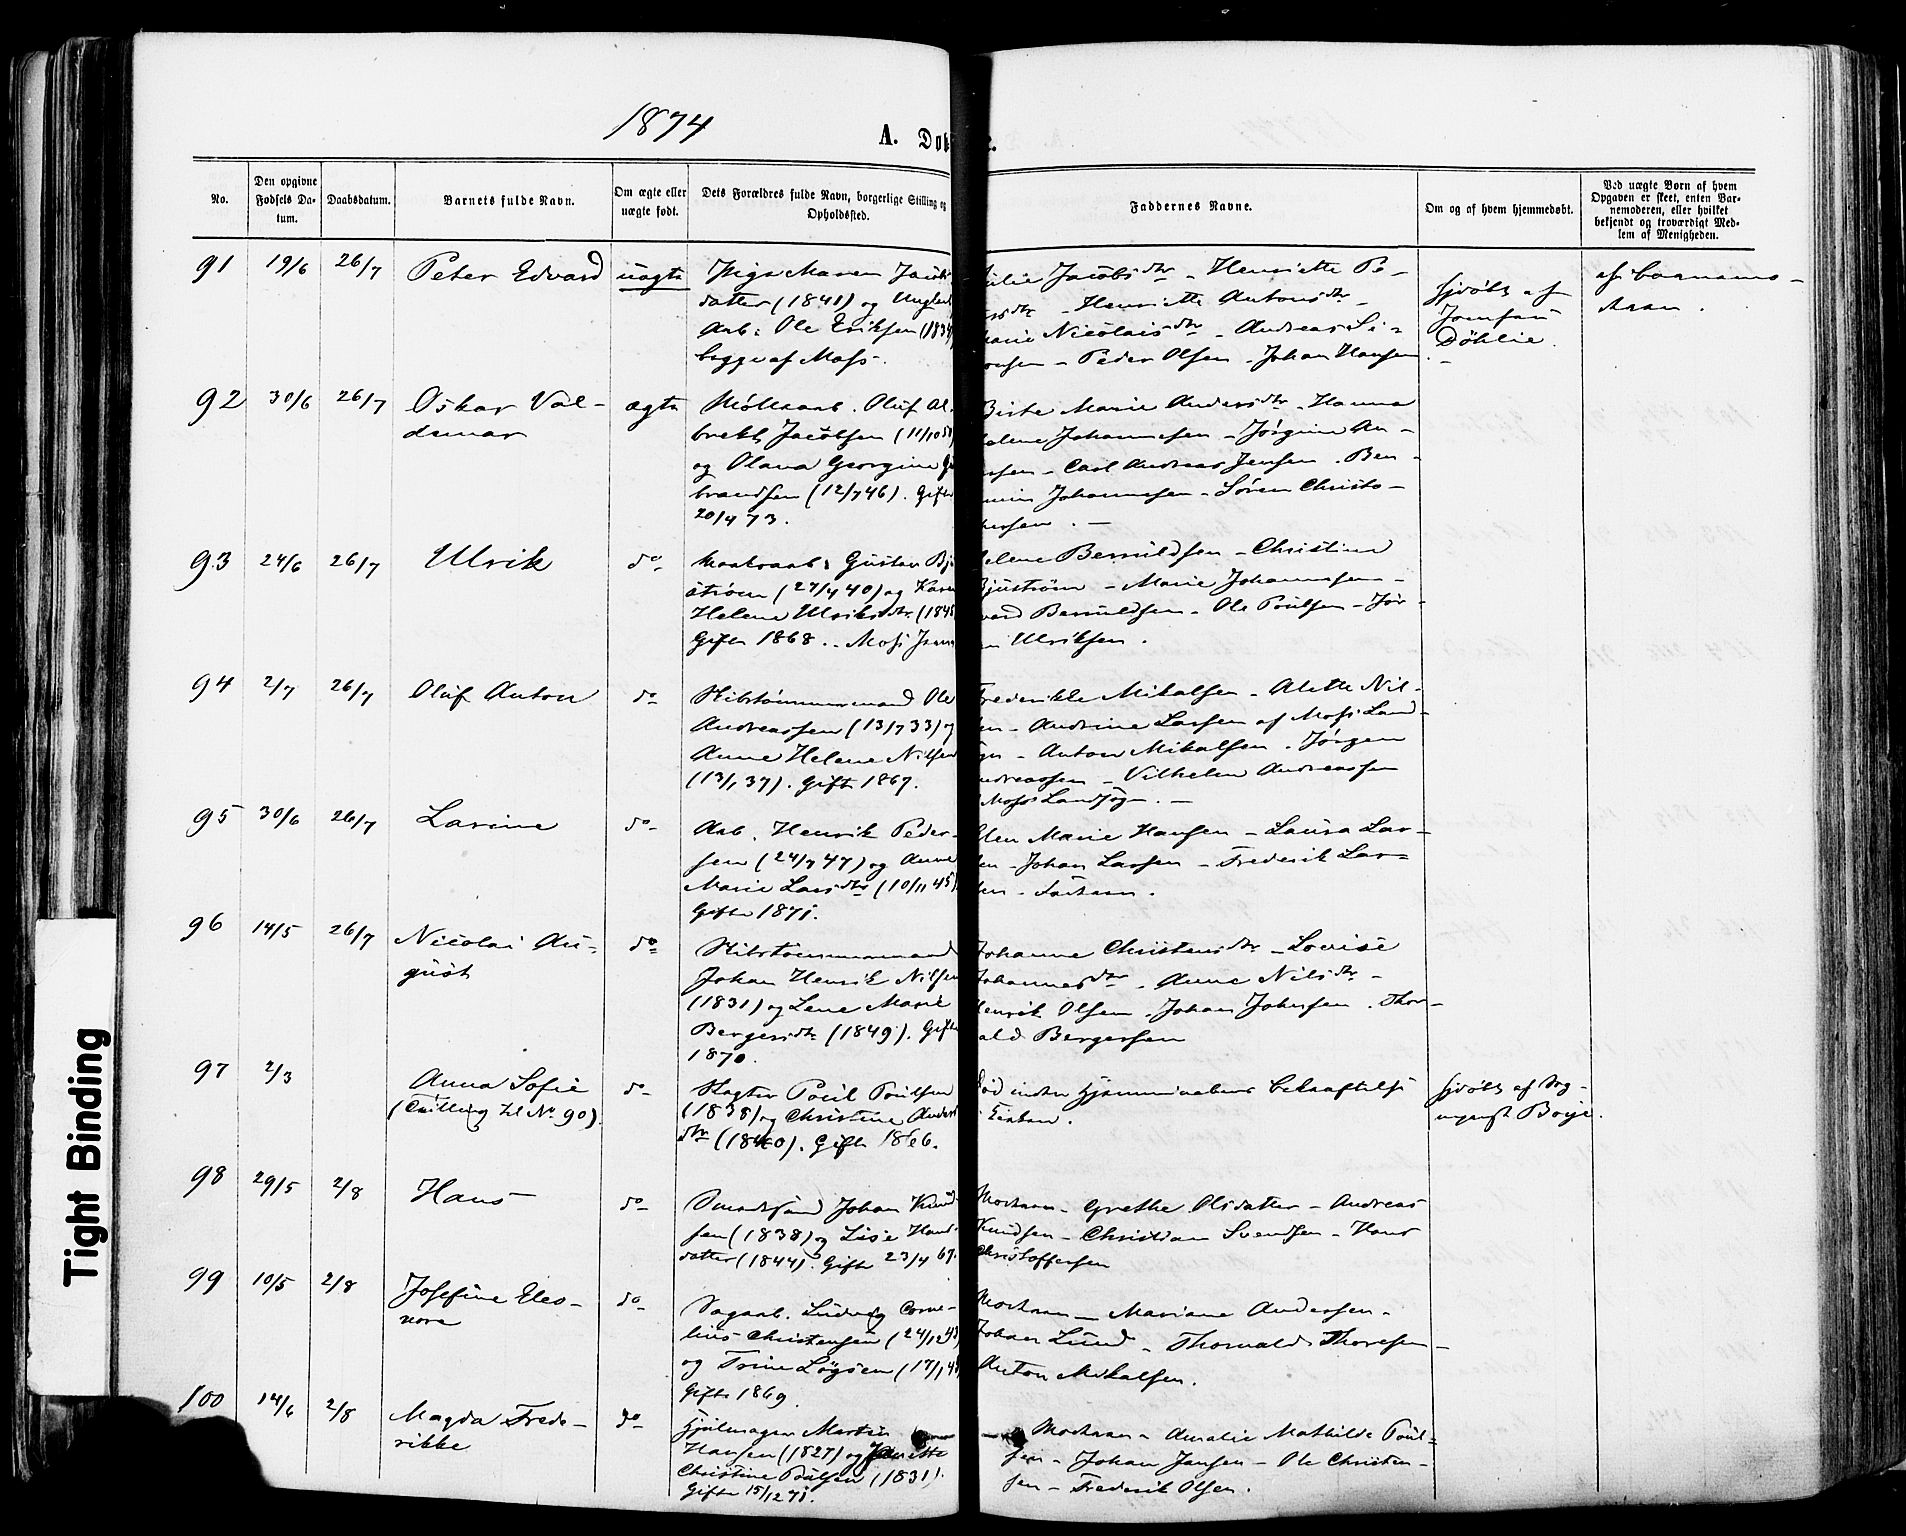 1874
A. Døb e.
No.
Den opgivne Fødsels Da-tum.
Daabsdatum.
Barnets fulde Navn.
Om ægte eller uægte født.
Dets Forældres fulde Navn, borgerlige Stilling og Opholdssted.
Faddernes Navne.
Om og af hvem hjemmedøbt.
Ved uægte Børn af hvem Opgaven er skeet, enten Bar-nemoderen, eller hvilket bekjendt og troværdigt Med-lem af Menigheden.
91 19/6 26/7 Peter Edvard uægte
Pige Maren Jacobs
datter (1841) og Ungkarl
Arb: Ole Eriksen (183
begge af Moss.
ulie Jacobsdtr - Henriette Pe-
rsdtr - Henriette Antonsdtr -
arie Nicolaisdtr - Andreas Si-
onsen - Peder Olsen - Johan Hansen
hjdøbt af
Jomfru
Døhlie.
af Barnemo-
deren.
92 30/6 26/7 Oskar Val-
demar ægte
Møllearb. Oluf Al-
brekt Jacobsen (11/10 5
og Olava Georgine G
brandsen (12/7 46). Gifte
20/4 73.
Birte Marie Andersdtr - Hanna
alene Johannesen - Jørgine An-
rsen - Carl Andreas Jensen - Ben-
amin Johannesen - Søren Christo-
phersen. -
93 24/6 26/7 Ulrik do
Gustav Bju
strøm (27/4 40) og Karen
Helene Ulriksdtr (184
Gifte 1868. - Moss
elene Berntldsen - Christine
Bjustrøm - Marie Johannesen -
vard Berntldsen - Ole Poulsen - Jør-
en Ulriksen.
94 2/7 26/7 Oluf Anton do
Skibstømmermand Ole
Andreassen (13/7 33) og
Anne Helene Nilsen
(13/1 37). Gifte 1867.
Frederikke Mikalsen - Alette Nil-
en - Andrine Larsen af Moss Land-
ogn - Anton Mikalsen - Jørgen
ndreassen - Vilhelm Andreassen
Moss Landsogn. -
95 30/6 26/7 Larine do
Arb. Henrik Peder-
sen (24/7 47) og Anne
Marie Larsdtr (10/11 45)
Gifte 1871.
Elen Marie Hansen - Laura Lar-
sen - Johan Larsen - Frederik Lar-
sen - Faderen.
96 14/5 26/7 Nicolai Au-
gust do
Skibstømmermand
Johan Henrik Nilsen
(1831) og Lene Marie
Bergersdtr (1849). Gifte
1870.
Johanne Christensdtr - Lovise
Johannesdtr - Anne Nilsdtr -
Henrik Olsen - Johan Johnsen - Thor-
ald Bergersen
97 2/3 Anna Sofie
(Tvilling til No 90). do
Slagter Poul Poulsen
(1838) og Christine Anders
dtr (1840). Gifte 1866.
Død inden Hjemmedaabens bekræftelse
i Kirken.
hjdøbt af Sog-
neprest Boye.
98 29/5 2/8 Hans do
Johan Knud-
sen (1838) og Lise Hans-
datter (1844). Gifte 23/4 67.
Moderen - Grethe Olsdatter - Andreas
Knudsen - Christian Svendsen - Hans
Christoffersen
99 10/5 2/8 Josefine Eleo-
nora do
Sagarb. Ludvig Corne-
lius Christensen (24/12 4
og Trine Løgsen (17/1 4
Gifte 1869.
Moderen - Mariane Andersen -
Johan Lund - Thorvald Thoresen -
Anton Mikalsen.
100 14/6 2/8 Magda Frede-
rikke do
Hjulmager Martin
Hansen (1827) og Janette
Christine Poulsen (1831).
Gifte 15/12 71.
Moderen - Amalie Mathilde Poul-
sen - Johan Jansen - Ole Christen-
sen - Frederik Olsen.
Tight Binding